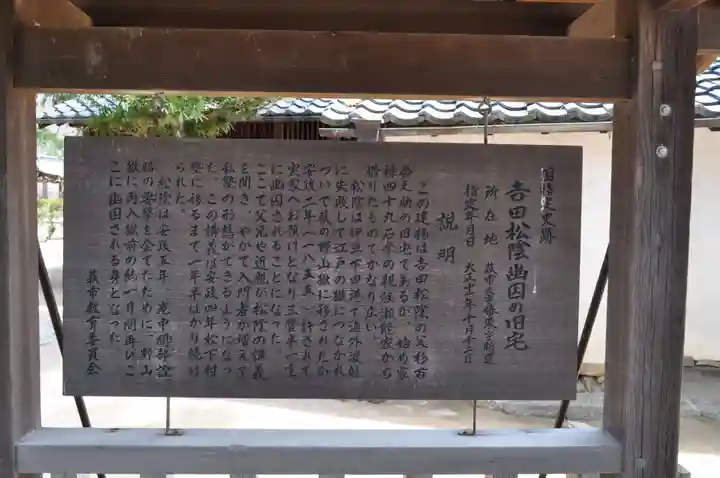 国指定史跡
吉田松陰幽囚の旧宅
所在地 萩市大字椿東字新道
指定年月日 大正十一年十月十二日
説明
この建物は吉田松陰の父杉百
合之助の旧宅であるが、始め家
禄四十九石余の親族瀬能家から
借りたものでかなり広い。
松陰は伊豆下田港で海外渡航
に失敗して江戸の獄につながれ
ついで萩の野山獄に移されたが
安政二年(一八五五)許されて
実家へお預けとなり三畳半一室
に幽囚されることになった。
ここで父兄や近親が松陰の講義
を聞き、やがて入門者が増えて
私塾の形態ができるようになっ
た。この講義は安政四年松下村
塾に移るまで一年半ばかり続け
られた。
松陰は安政五年、老中間部詮
勝の要撃を企てたために、野山
獄に再入獄前の約一月間再びこ
こに幽囚される身となった。
萩市教育委員会